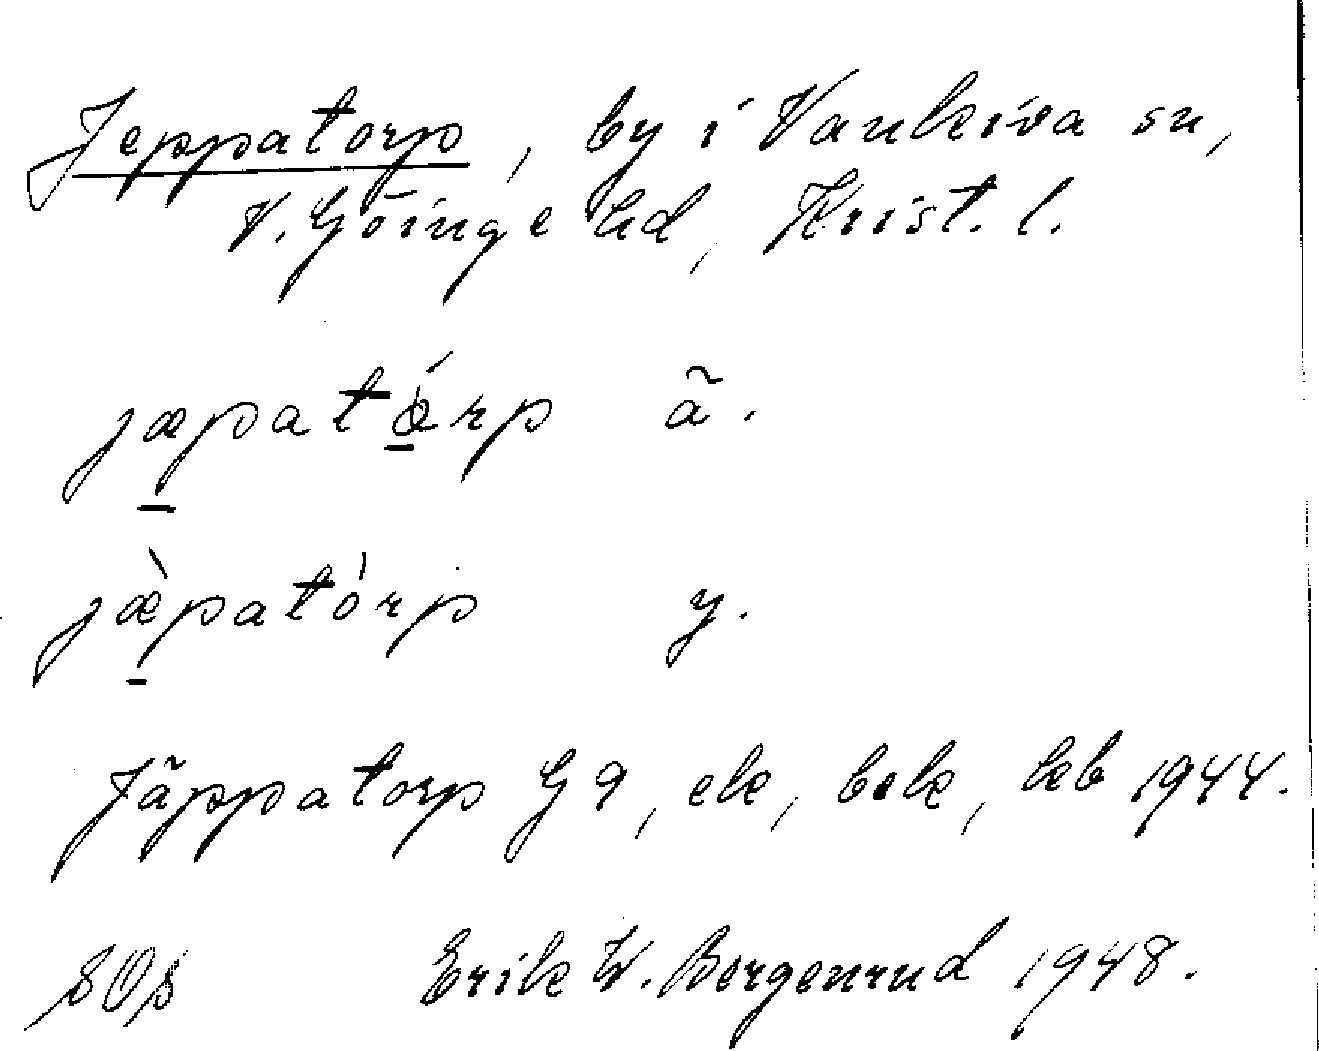 Jeppatorp, by i Vankiva sn,
V. Göinge hd, Krist. l.
jæpatǿrp ã.
jæ̀patórp y.
Jäppatorp G 9, ek, bebk, hkb 1944.
SOS Erik W. Borgenrud 1948.